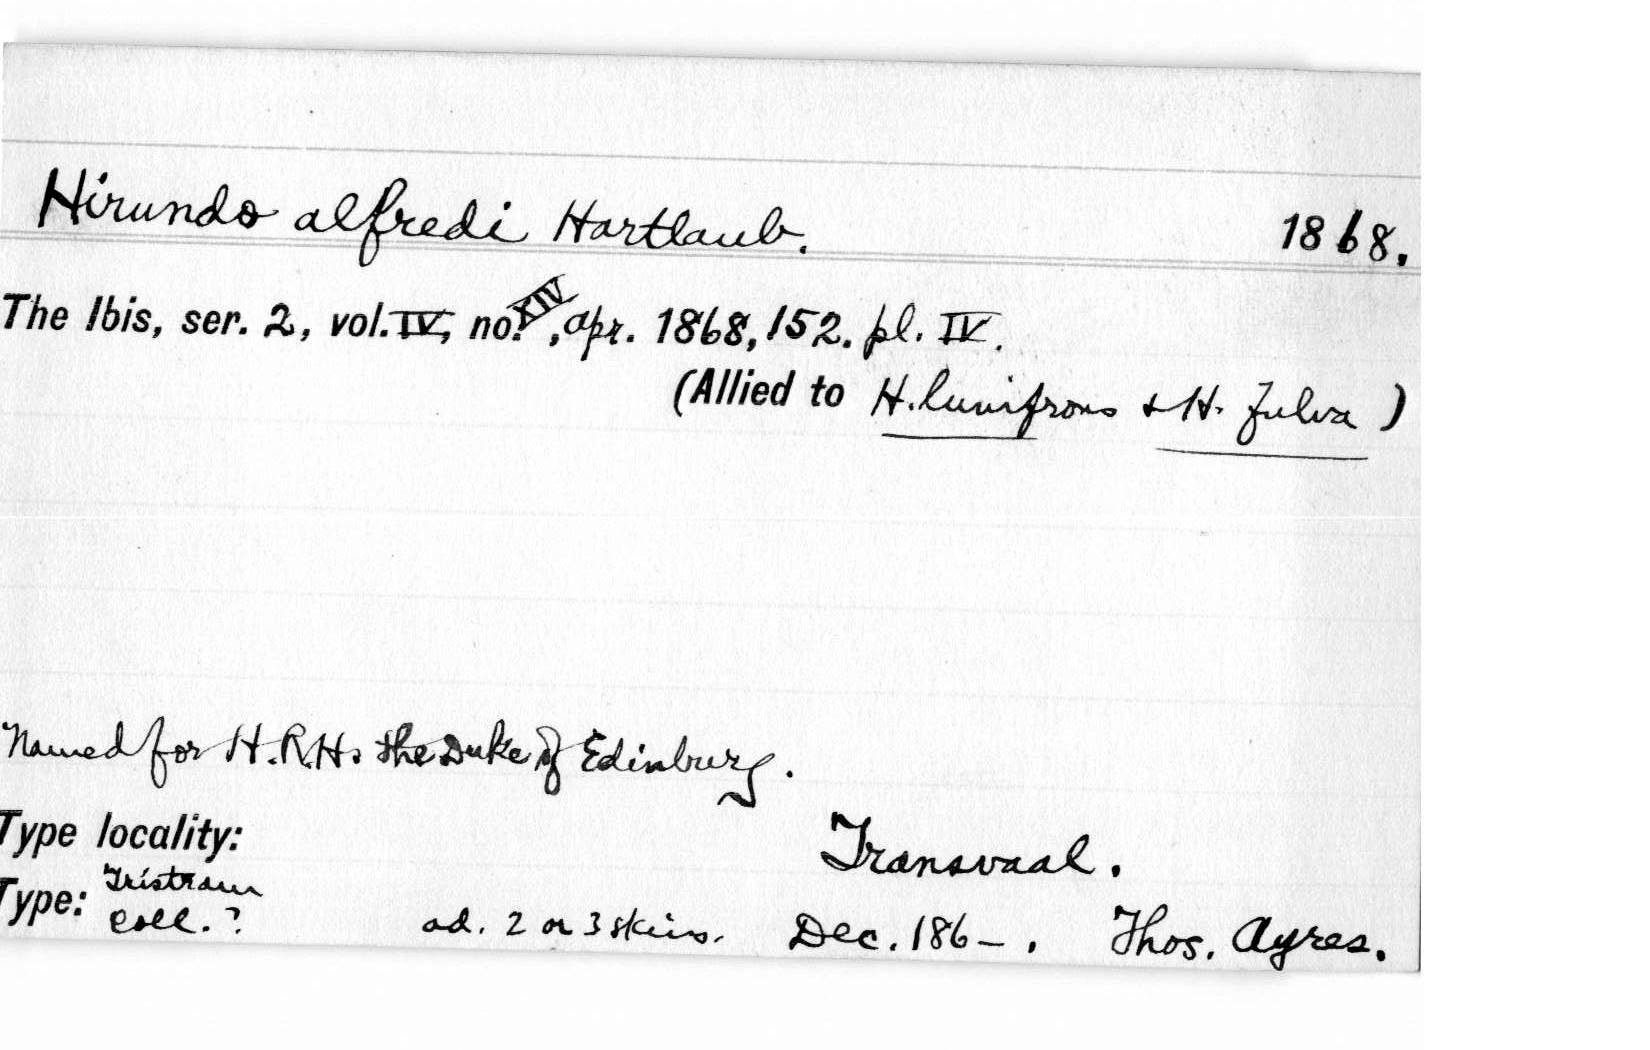 Hirundo alfredi Hartlaub. 1868.
The Ibis, ser. 2, vol. IV, no. XIV, apr. 1868, 152. pl. IV.
(Allied to H. lunifrons & H. fulva)
Named for H.R.H. the Duke of Edinburg.
Type locality: Transvaal.
Type: Tristram Coll.? ad. 2 or 3 skins. Dec. 186–. Thos. Ayres.